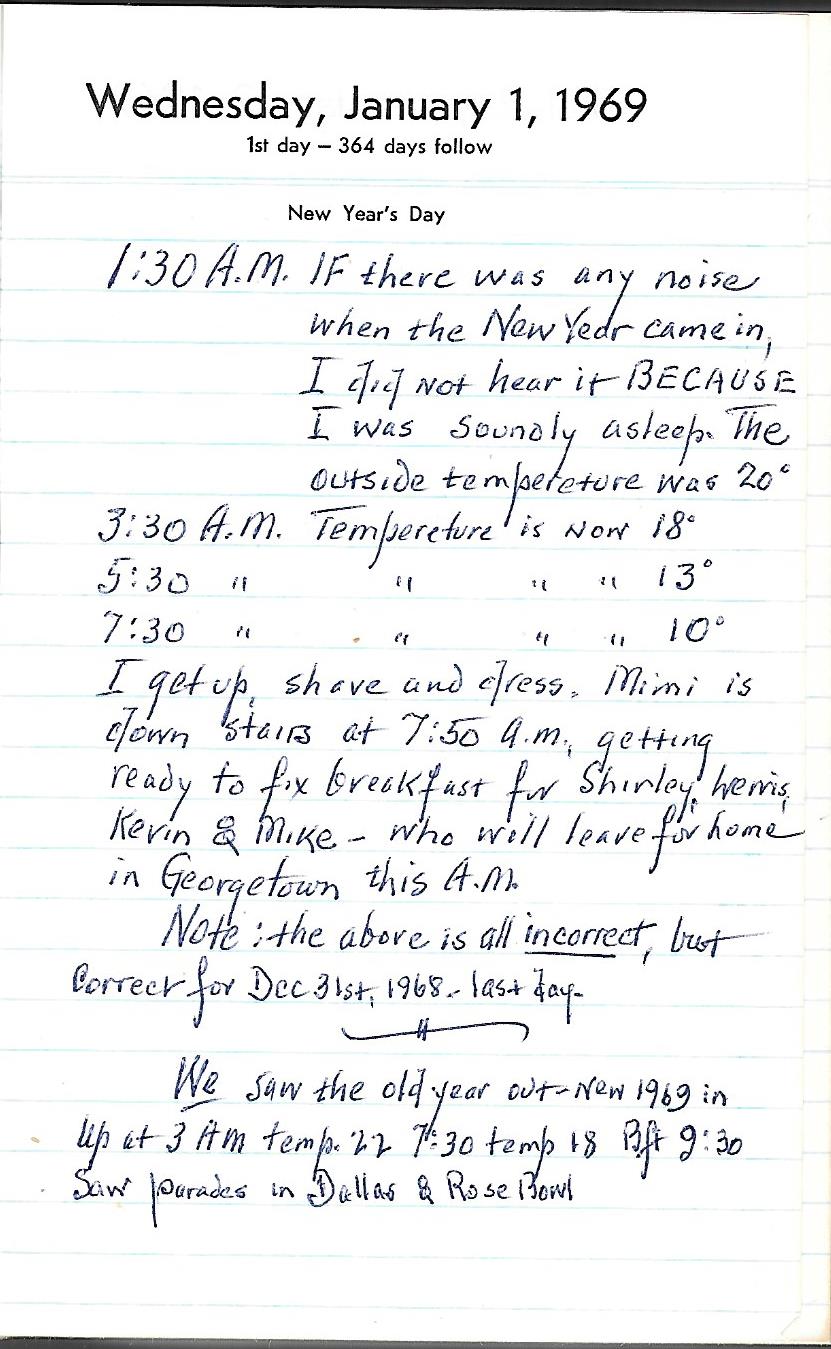 Wednesday, January 1, 1969
1st day – 364 days follow
New Year's Day
1:30 A.M. IF there was any noise
when the New Year came in,
I did NOT hear it BECAUSE
I was soundly asleep. The
outside tempereture was 20°
3:30 A.M. Tempereture is NOW 18°
5:30 " " " " 13°
7:30 " " " " 10°
I get up, shave and dress. Mimi is
down stairs at 7:50 a.m., getting
ready to fix breakfast for Shirley,
Kevin & Mike – who will leave for home
in Georgetown this A.M.
Note: the above is all incorrect, but
Correct for Dec 31st, 1968. – last day.
We saw the old year out – New 1969 in
Up at 3 AM temp. 22 7:30 temp 18 Bft 9:30
Saw parades in Dallas & Rose Bowl